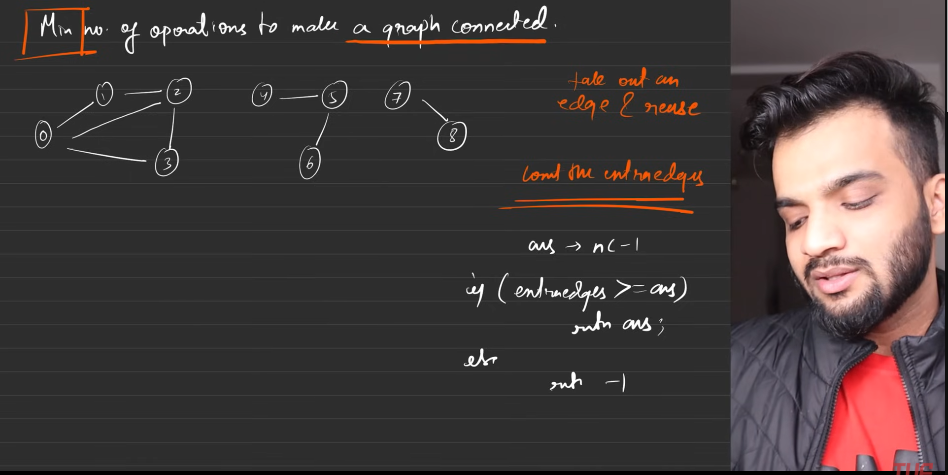 Min no. of operations to make a graph connected.
1
2
0
3
4
5
6
7
8
take out an
edge & reuse
count the extraedges
ans → nC-1
if (extraedges >= ans)
retn ans;
else
retn -1
THE